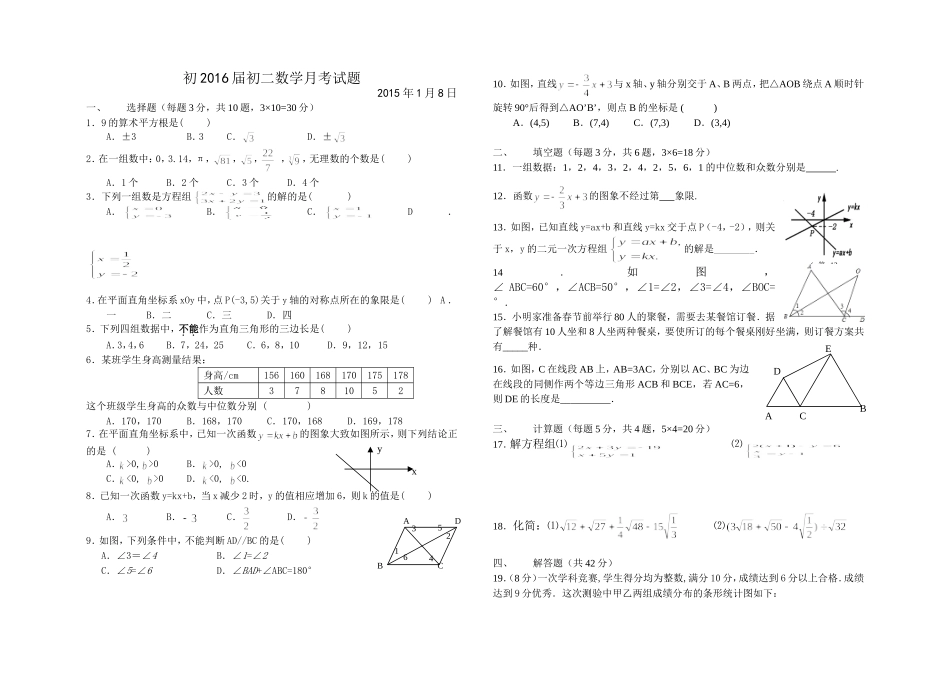 初2016届初二数学月考试题
2015年1月8日
一、 选择题（每题3分，共10题，3×10=30分）
1．9的算术平方根是( )
A．±3 B.3 C．√3 D．±√3
2．在一组数中：0，3.14，π，√81，√5，22/7，∛9，无理数的个数是( )
A．1个 B．2个 C．3个 D．4个
3．下列一组数是方程组 的解的是( )
A． B． C． D ．
x=1/2
y=-2
4.在平面直角坐标系xOy中，点P(-3,5)关于y轴的对称点所在的象限是( ) A．
一 B．二 C．三 D．四
5．下列四组数据中，不能作为直角三角形的三边长是( )
A.3,4,6 B．7，24，25 C．6，8，10 D．9，12，15
6．某班学生身高测量结果：
身高/cm 156 160 168 170 175 178
人数 3 7 8 10 5 2
这个班级学生身高的众数与中位数分别（ ）
A．170，170 B．168，170 C．170，168 D．169，178
7．在平面直角坐标系中，已知一次函数y=kx+b的图象大致如图所示，则下列结论正
的是（ ）
A．k>0,b>0 B．k>0, b<0
C．k<0, b>0 D．k<0, b<0.
y
x
8．已知一次函数y=kx+b，当x减少2时，y的值相应增加6，则k的值是( )
A．3 B．-3 C．3/2 D．-3/2
9．如图，下列条件中，不能判断AD//BC的是( )
A．∠3＝∠4 B．∠1=∠2
C．∠5=∠6 D．∠BAD+∠ABC=180°
A D
3 5
2
1
6 4
B C
10．如图，直线y=-3/4x+3与x轴、y轴分别交于A、B两点，把△AOB绕点A顺时针
旋转90°后得到△AO’B’，则点B的坐标是 ( )
A．(4,5) B．(7,4) C．(7,3) D．(3,4)
二、 填空题（每题3分，共6题，3×6=18分）
11．一组数据：1，2，4，3，2，4，2，5，6，1的中位数和众数分别是______．
12．函数y=-2/3x+3的图象不经过第___象限.
13．如图，已知直线y=ax+b和直线y=kx交于点P（-4，-2），则关
于x，y的二元一次方程组 y=ax+b, y=kx. 的解是________．
y
y=kx
-4
O
x
P
-2
y=ax+b
14 ． 如 图 ，
∠ABC=60°，∠ACB=50°，∠1=∠2，∠3=∠4，∠BOC=
°．
A O
1 2 3 4
B C D
15．小明家准备春节前举行80人的聚餐，需要去某餐馆订餐．据
了解餐馆有10人坐和8人坐两种餐桌，要使所订的每个餐桌刚好坐满，则订餐方案共
有_____种．
16．如图，C在线段AB上，AB=3AC，分别以AC、BC为边
在线段的同侧作两个等边三角形ACB和BCE，若AC=6，
则DE的长度是__________．
E
D
A C B
三、 计算题（每题5分，共4题，5×4=20分）
17．解方程组⑴ ⑵
18．化简：⑴√12+√27+1/4√48-15√1/3 ⑵(3√18+√50-4√1/2)÷√32
四、 解答题（共42分）
19．（8分）一次学科竞赛,学生得分均为整数,满分10分,成绩达到6分以上合格．成绩
达到9分优秀．这次测验中甲乙两组成绩分布的条形统计图如下：